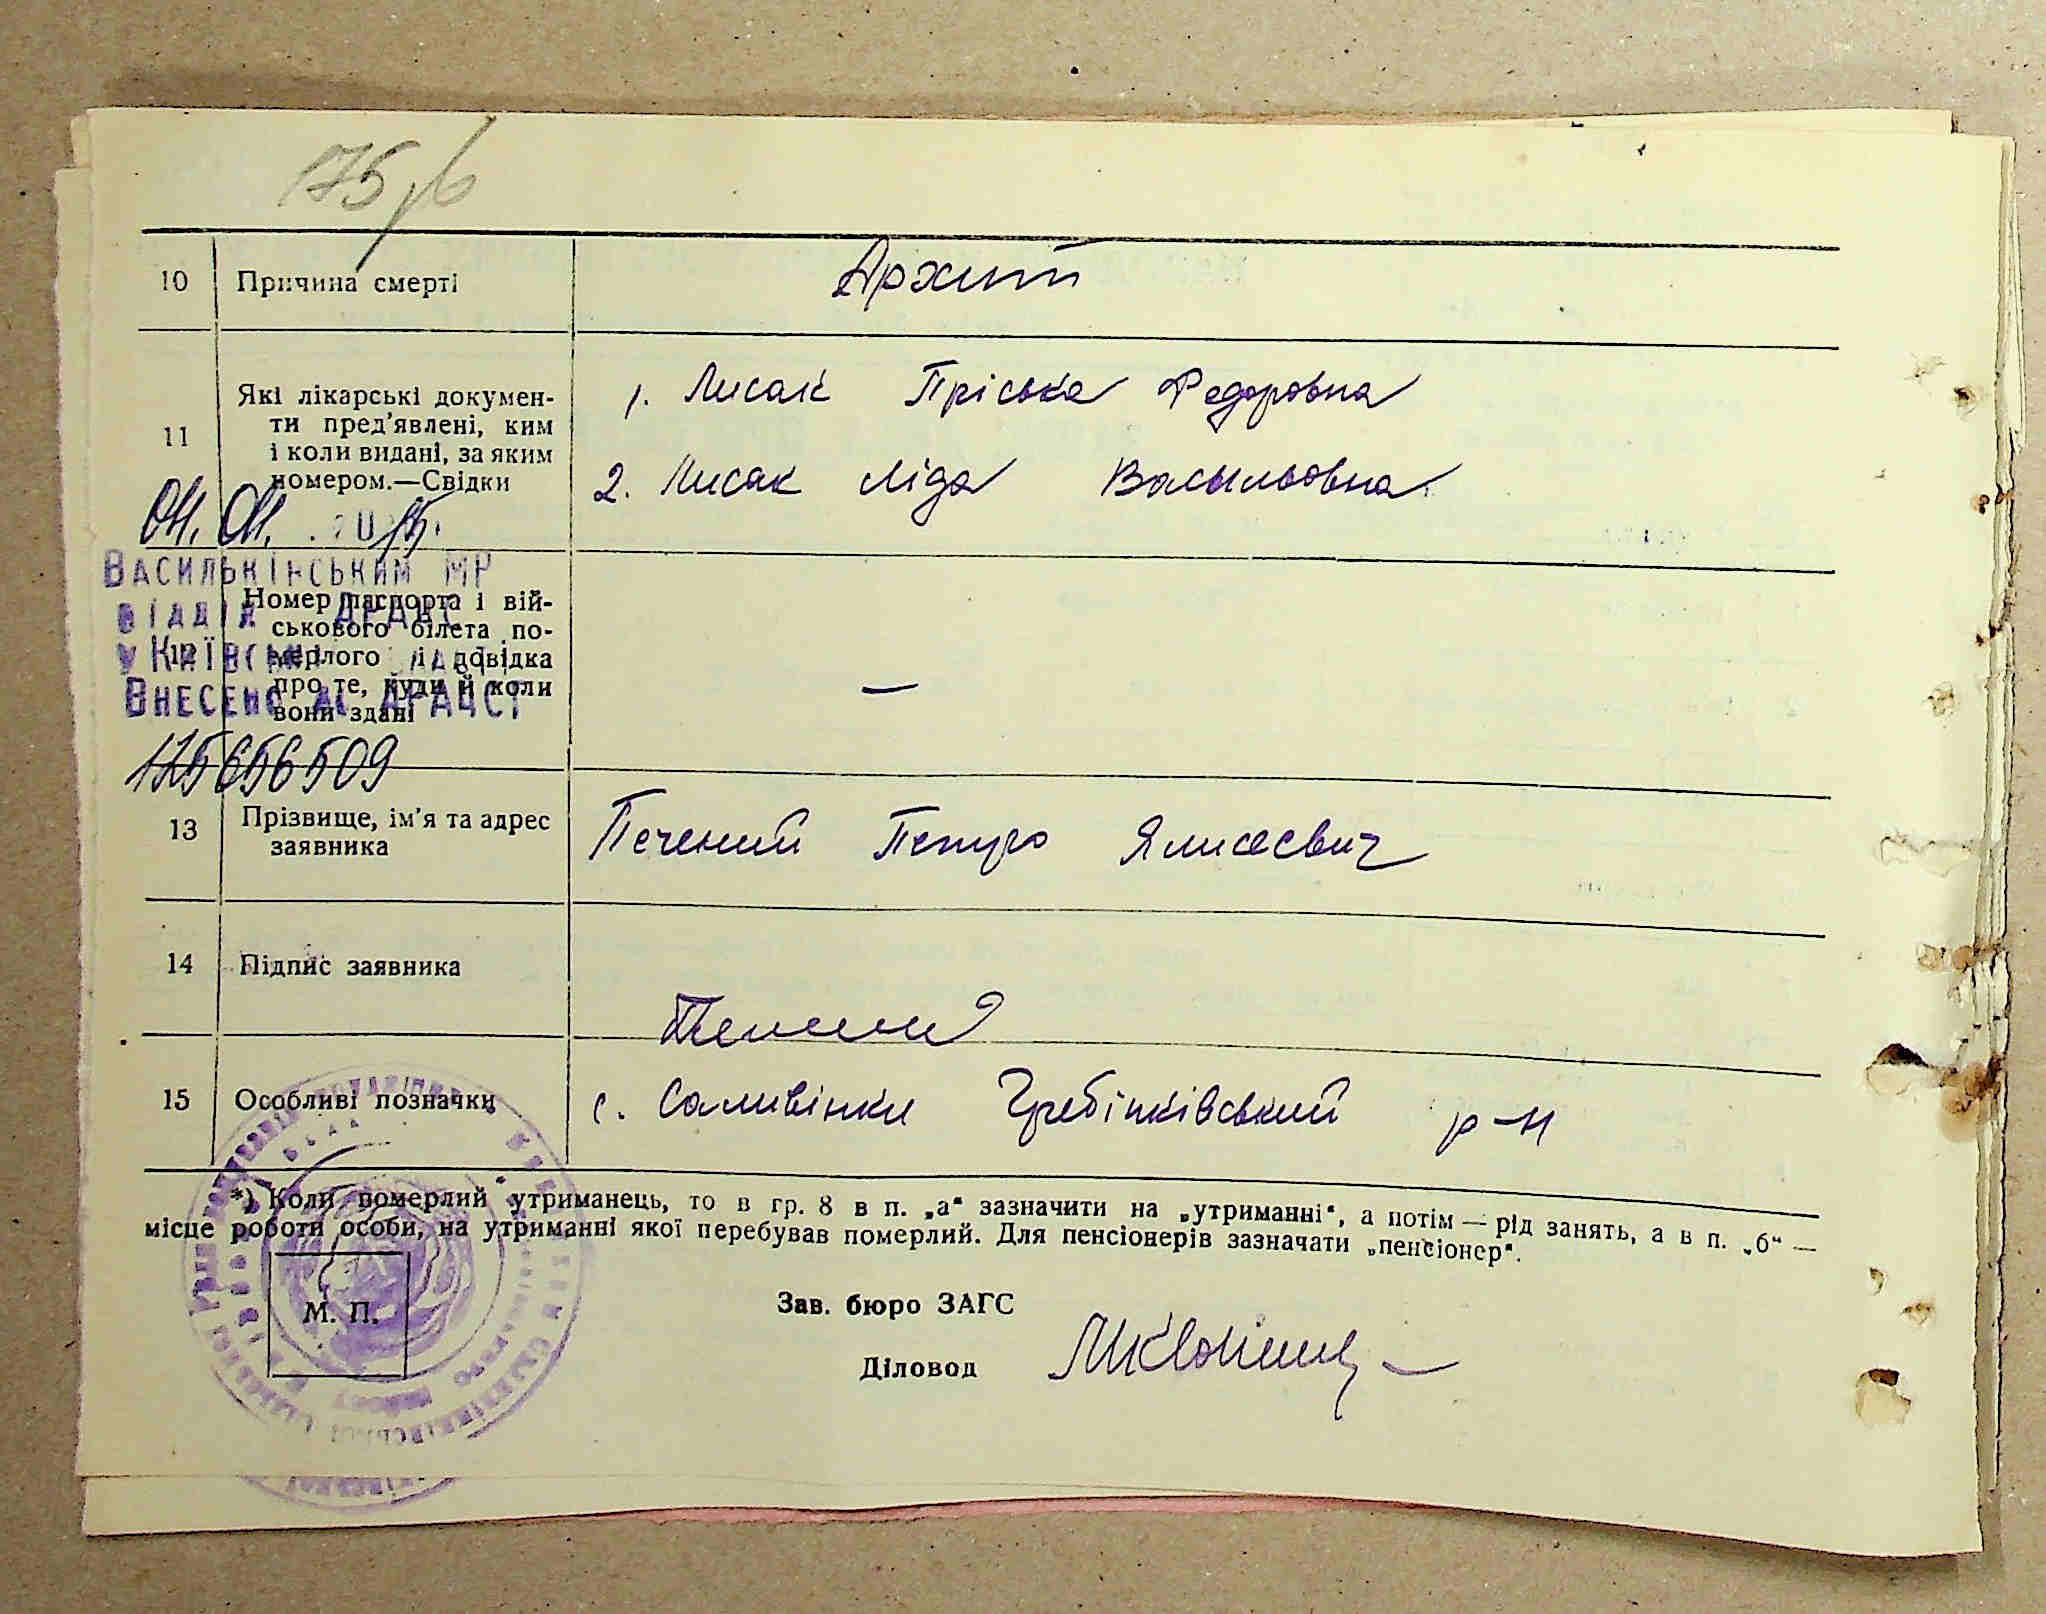 175
10 Причина смерті
Архит
11 Які лікарські докумен-
ти пред'явлені, ким
і коли видані, за яким
номером.—Свідки
1. Лисак Пріська Федоровна
2. Лисак Ліда Васильовна
04. 04.
Васильківським МР
відділ ДРАЦС
у Київській області
Внесено до ДРАЦСГ
12 Номер паспорта і вій-
ськового білета по-
мерлого і довідка
про те, куди й коли
вони здані
—
125656509
13 Прізвище, ім'я та адрес
заявника
Печений Петро Ялисеєвич
14 Підпис заявника
15 Особливі позначки
с. Саливінки Гребінківський р-н
*) Коли померлий утриманець, то в гр. 8 в п. „а“ зазначити на „утриманні“, а потім — рід занять, а в п. „б“ —
місце роботи особи, на утриманні якої перебував померлий. Для пенсіонерів зазначати „пенсіонер“.
М. П.
Зав. бюро ЗАГС
Діловод